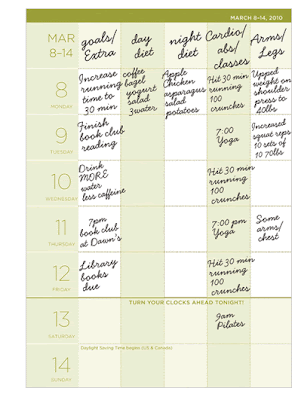 MARCH 8-14, 2010
MAR
8-14
goals/
Extra
day
diet
night
diet
Cardio/
abs/
classes
Arms/
Legs
8
MONDAY
Increase
running
time to
30 min
coffee
bagel
yogurt
salad
3water
Apple
Chicken
asparagus
salad
potatoes
Hit 30 min
running
100
crunches
Upped
weight on
shoulder
press to
40lbs
9
TUESDAY
Finish
book club
reading
7:00
Yoga
Increased
squat reps
10 sets of
10 70lbs
10
WEDNESDAY
Drink
MORE
water
less caffeine
Hit 30 min
running
100
crunches
11
THURSDAY
7pm
book club
at Dawn's
7:00 pm
Yoga
Some
arms/
chest
12
FRIDAY
Library
books
due
Hit 30 min
running
100
crunches
13
SATURDAY
TURN YOUR CLOCKS AHEAD TONIGHT!
9am
Pilates
14
SUNDAY
Daylight Saving Time Begins (US & Canada)